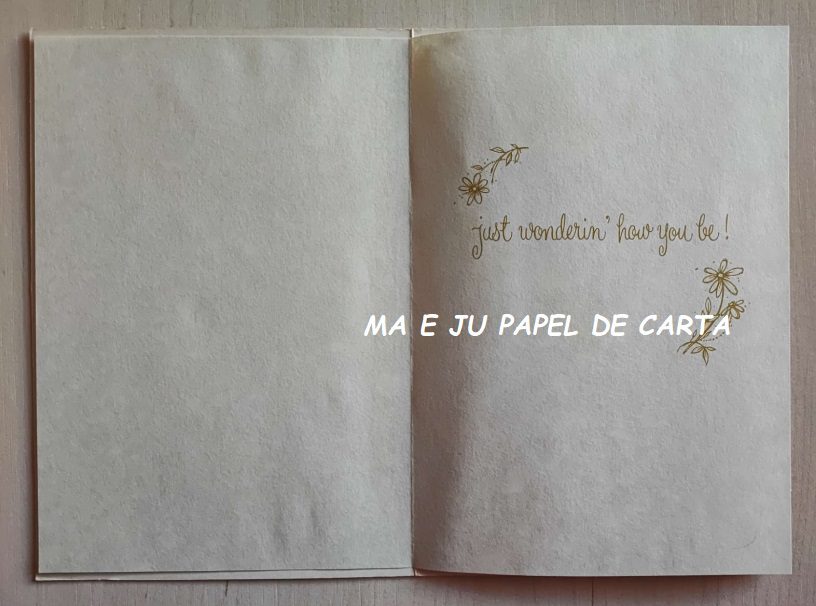 just wonderin' how you be!
MA E JU PAPEL DE CARTA